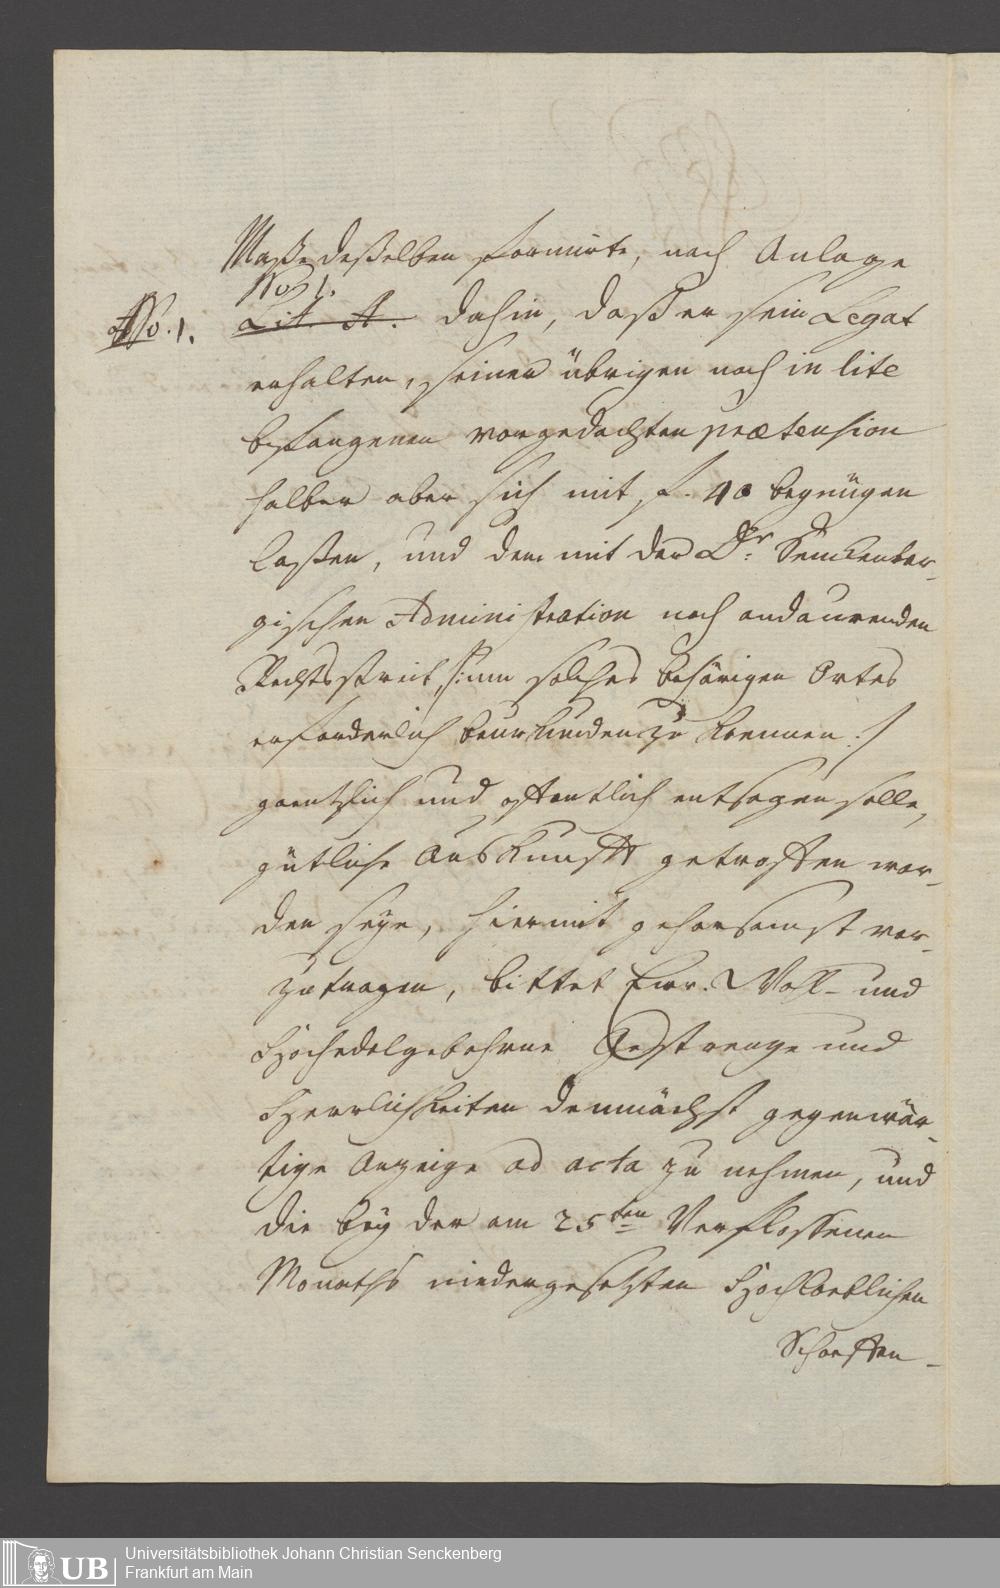 Maße deßelben formirte, nach Anlage
No 1.
No. 1.
Lit. A. dahin, daß er sein Legat
erhalten, seiner übrigen noch in lite
befangenen vorgedachten prætension
halber aber sich mit f. 40 begnügen
laßen, und dem mit der Dr. Senckenber-
gischen Administration noch andaurenden
Rechtsstreit /: um solches behörigen Ortes
erforderlich beurkunden zu koennen :/
gaentzlich und offentlich entsagen solle,
gütliche Auskunfft getroffen wor-
den seye, hiermit gehorsamst vor-
zutragen, bittet Ewr. Wohl- und
Hochedelgebohrne Gestrenge und
Herrlichkeiten demnächst gegenwär-
tige Anzeige ad acta zu nehmen, und
die bey der am 25ten Verflossenen
Monaths niedergesetzten Hochloeblichen
Schoeffen-
UB
Universitätsbibliothek Johann Christian Senckenberg
Frankfurt am Main